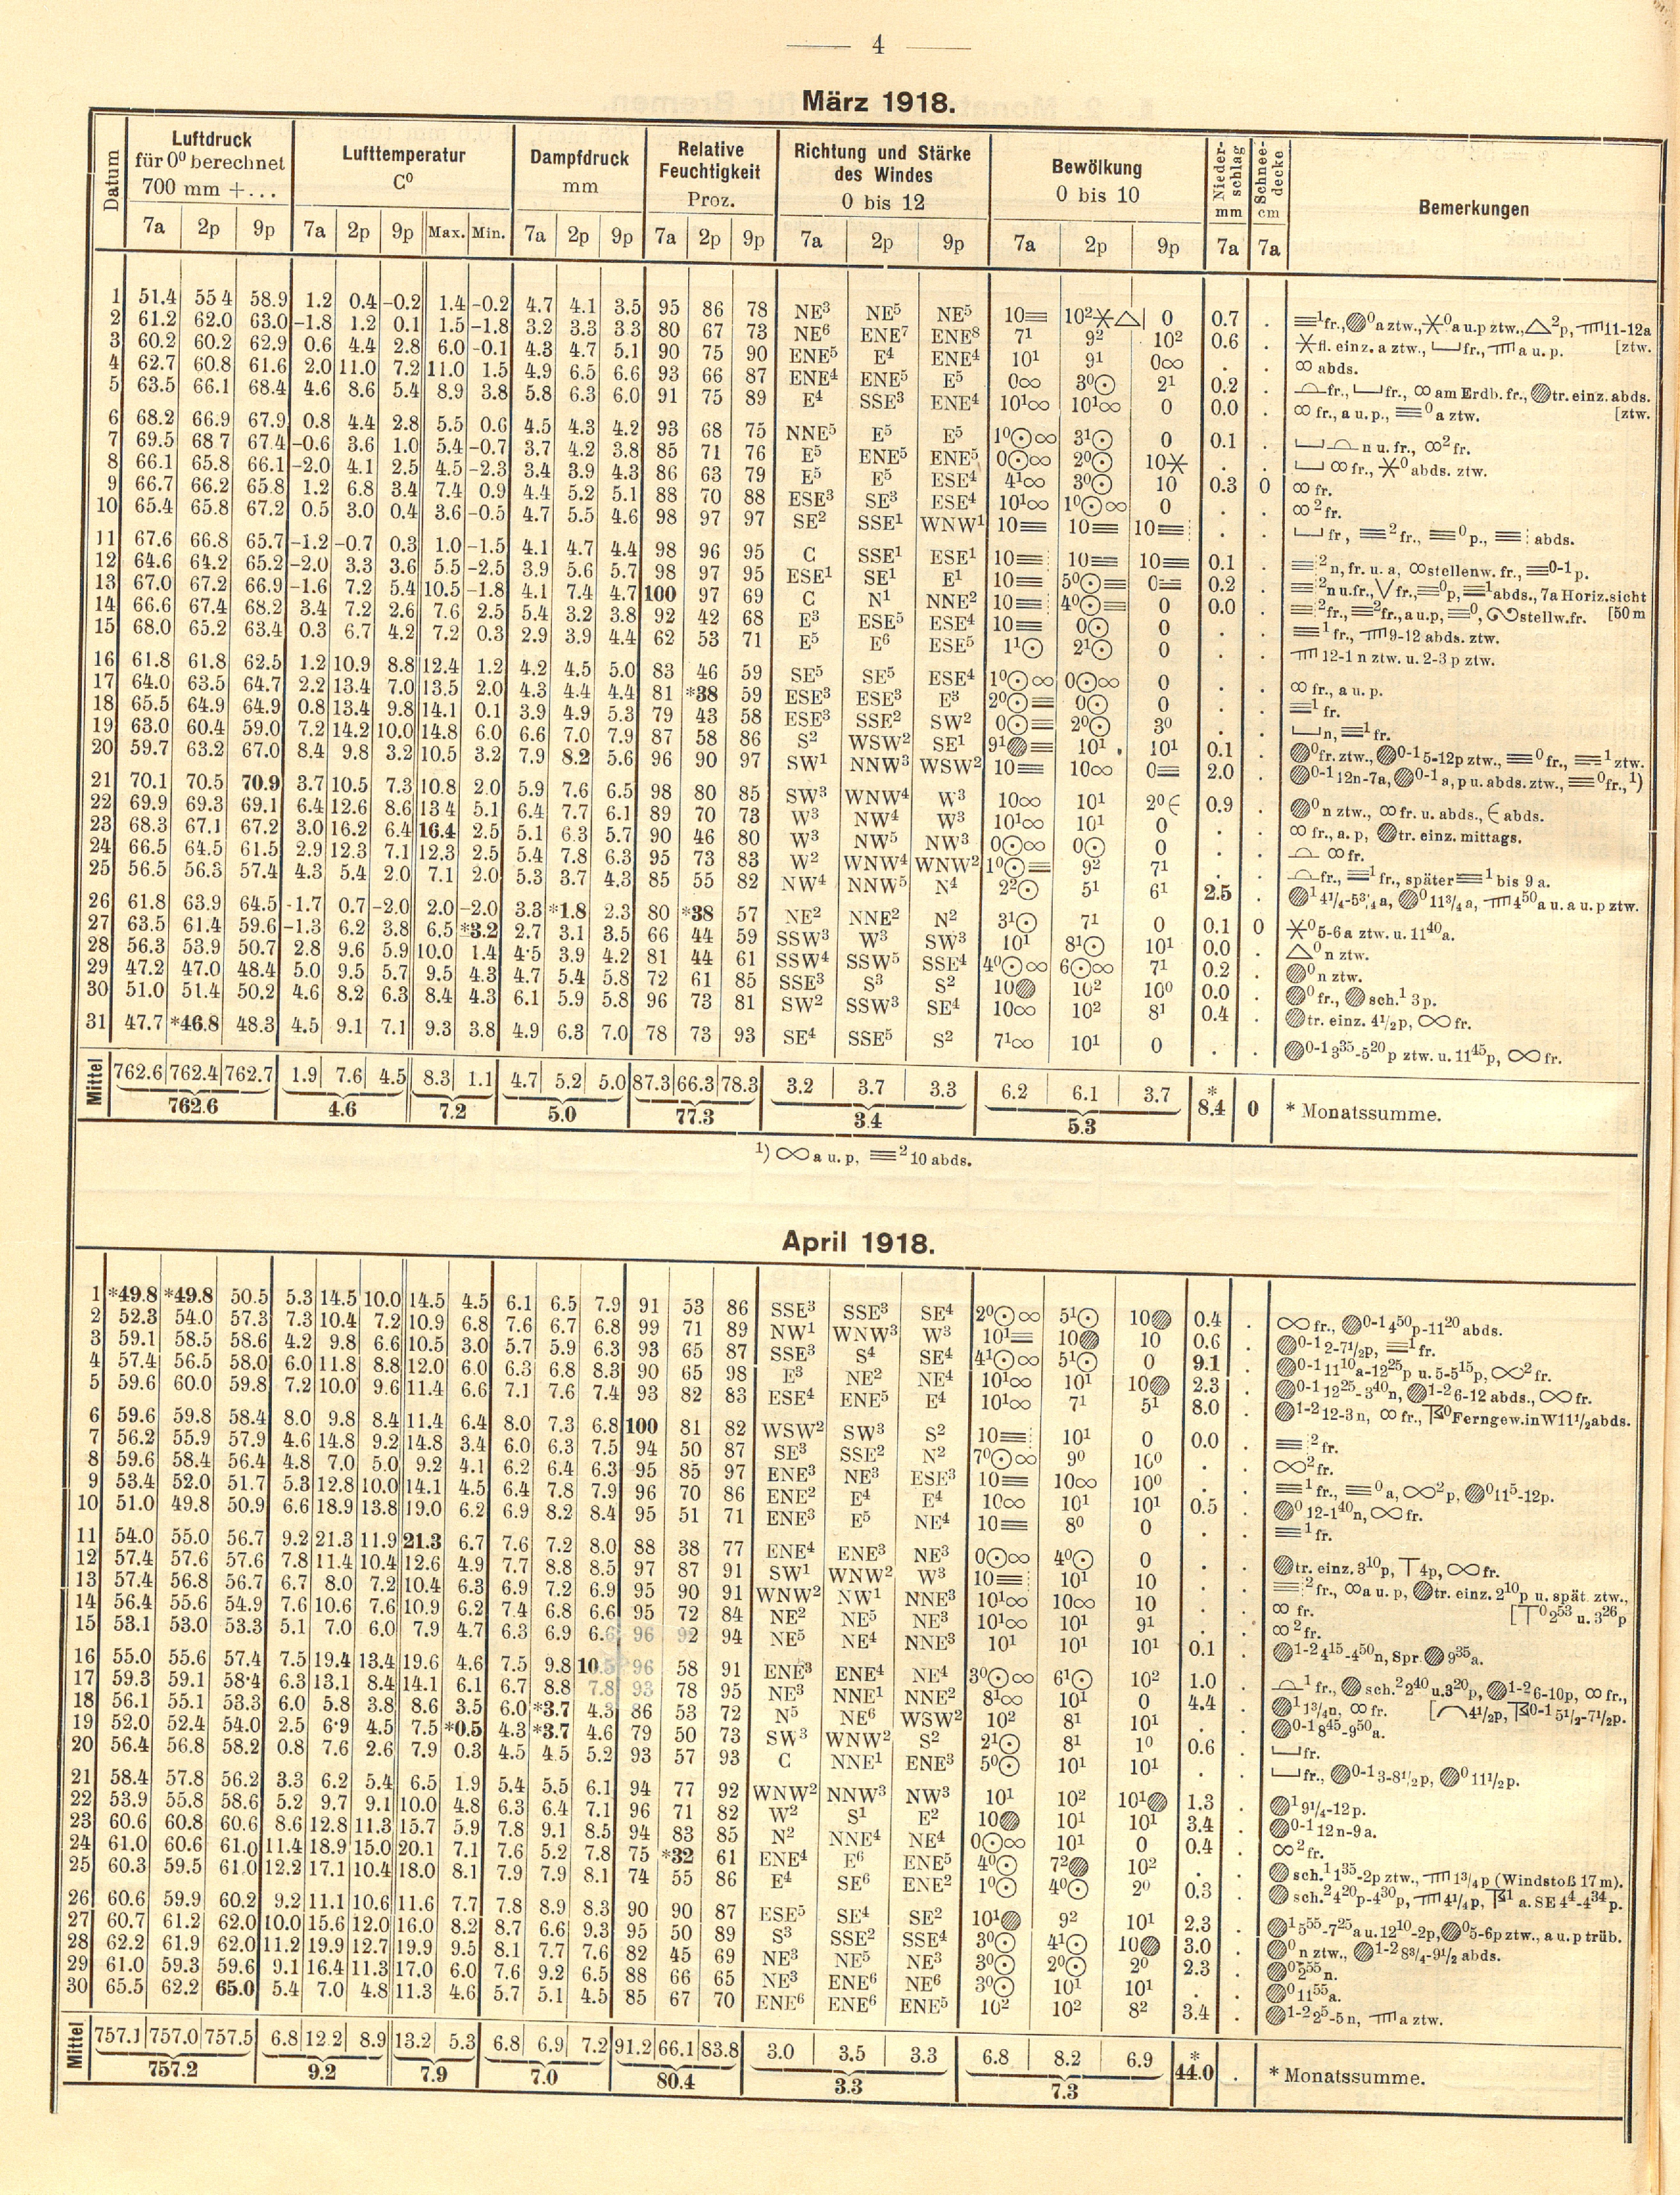 — 4 —
März 1918.
Datum | Luftdruck für 0⁰ berechnet 700 mm +... | Lufttemperatur C⁰ | Dampfdruck mm | Relative Feuchtigkeit Proz. | Richtung und Stärke des Windes 0 bis 12 | Bewölkung 0 bis 10 | Niederschlag mm | Schneedecke cm | Bemerkungen
7a 2p 9p | 7a 2p 9p Max. Min. | 7a 2p 9p | 7a 2p 9p | 7a 2p 9p | 7a 2p 9p | 7a | 7a
1 51.4 55 4 58.9 1.2 0.4 -0.2 1.4 -0.2 4.7 4.1 3.5 95 86 78 NE³ NE⁵ NE⁵ 10≡ 10²✶△ 0 0.7 . ≡¹fr., ◍⁰a ztw., ✶⁰a u.p ztw., △²p, 11-12a
2 61.2 62.0 63.0 -1.8 1.2 0.1 1.5 -1.8 3.2 3.3 3.3 80 67 73 NE⁶ ENE⁷ ENE⁸ 7¹ 9² 10² 0.6 . ✶fl. einz. a ztw., ⌴fr., a u. p. [ztw.
3 60.2 60.2 62.9 0.6 4.4 2.8 6.0 -0.1 4.3 4.7 5.1 90 75 90 ENE⁵ E⁴ ENE⁴ 10¹ 9¹ 0∞ . . ∞ abds.
4 62.7 60.8 61.6 2.0 11.0 7.2 11.0 1.5 4.9 6.5 6.6 93 66 87 ENE⁴ ENE⁵ E⁵ 0∞ 3⁰⊙ 2¹ 0.2 . ⌓fr., ⌴fr., ∞ am Erdb. fr., ◍tr. einz. abds.
5 63.5 66.1 68.4 4.6 8.6 5.4 8.9 3.8 5.8 6.3 6.0 91 75 89 E⁴ SSE³ ENE⁴ 10¹∞ 10¹∞ 0 0.0 . ∞ fr., a u. p., ≡⁰a ztw. [ztw.
6 68.2 66.9 67.9 0.8 4.4 2.8 5.5 0.6 4.5 4.3 4.2 93 68 75 NNE⁵ E⁵ E⁵ 1⁰⊙∞ 3¹⊙ 0 0.1 . ⌴⌓n u. fr., ∞²fr.
7 69.5 68 7 67.4 -0.6 3.6 1.0 5.4 -0.7 3.7 4.2 3.8 85 71 76 E⁵ ENE⁵ ENE⁵ 0⊙∞ 2⁰⊙ 10✶ . . ⌴ ∞ fr., ✶⁰abds. ztw.
8 66.1 65.8 66.1 -2.0 4.1 2.5 4.5 -2.3 3.4 3.9 4.3 86 63 79 E⁵ E⁵ ESE⁴ 4¹∞ 3⁰⊙ 10 0.3 0 ∞ fr.
9 66.7 66.2 65.8 1.2 6.8 3.4 7.4 0.9 4.4 5.2 5.1 88 70 88 ESE³ SE³ ESE⁴ 10¹∞ 1⁰⊙∞ 0 . . ∞²fr.
10 65.4 65.8 67.2 0.5 3.0 0.4 3.6 -0.5 4.7 5.5 4.6 98 97 97 SE² SSE¹ WNW¹ 10≡ 10≡ 10≡ . . ⌴fr , ≡²fr., ≡⁰p., ≡ abds.
11 67.6 66.8 65.7 -1.2 -0.7 0.3 1.0 -1.5 4.1 4.7 4.4 98 96 95 C SSE¹ ESE¹ 10≡ 10≡ 10≡ 0.1 . ≡²n, fr. u. a, ∞stellenw. fr., ≡0-1p.
12 64.6 64.2 65.2 -2.0 3.3 3.6 5.5 -2.5 3.9 5.6 5.7 98 97 95 ESE¹ SE¹ E¹ 10≡ 5⁰⊙≡ 0≡ 0.2 . ≡²n u.fr., ∨fr., ≡⁰p, ≡¹abds., 7a Horiz.sicht
13 67.0 67.2 66.9 -1.6 7.2 5.4 10.5 -1.8 4.1 7.4 4.7 100 97 69 C N¹ NNE² 10≡ 4⁰⊙≡ 0 0.0 . ≡²fr., ≡²fr., a u.p, ≡⁰, stellw.fr. [50 m
14 66.6 67.4 68.2 3.4 7.2 2.6 7.6 2.5 5.4 3.2 3.8 92 42 68 E³ ESE⁵ ESE⁴ 10≡ 0⊙ 0 . . ≡¹fr., 9-12 abds. ztw.
15 68.0 65.2 63.4 0.3 6.7 4.2 7.2 0.3 2.9 3.9 4.4 62 53 71 E⁵ E⁶ ESE⁵ 1¹⊙ 2¹⊙ 0 . . 12-1 n ztw. u. 2-3 p ztw.
16 61.8 61.8 62.5 1.2 10.9 8.8 12.4 1.2 4.2 4.5 5.0 83 46 59 SE⁵ SE⁵ ESE⁴ 1⁰⊙∞ 0⊙∞ 0 . . ∞ fr., a u. p.
17 64.0 63.5 64.7 2.2 13.4 7.0 13.5 2.0 4.3 4.4 4.4 81 *38 59 ESE³ ESE³ E³ 2⁰⊙≡ 0⊙ 0 . . ≡¹fr.
18 65.5 64.9 64.9 0.8 13.4 9.8 14.1 0.1 3.9 4.9 5.3 79 43 58 ESE³ SSE² SW² 0⊙≡ 2⁰⊙ 3⁰ . . ⌴n, ≡¹fr.
19 63.0 60.4 59.0 7.2 14.2 10.0 14.8 6.0 6.6 7.0 7.9 87 58 86 S² WSW² SE¹ 9¹◍≡ 10¹ 10¹ 0.1 . ◍⁰fr. ztw., ◍0-1 5-12p ztw., ≡⁰fr., ≡¹ztw.
20 59.7 63.2 67.0 8.4 9.8 3.2 10.5 3.2 7.9 8.2 5.6 96 90 97 SW¹ NNW³ WSW² 10≡ 10∞ 0≡ 2.0 . ◍0-1 12n-7a, ◍0-1 a, p u. abds. ztw., ≡⁰fr., ¹)
21 70.1 70.5 70.9 3.7 10.5 7.3 10.8 2.0 5.9 7.6 6.5 98 80 85 SW³ WNW⁴ W³ 10∞ 10¹ 2⁰∈ 0.9 . ◍⁰n ztw., ∞ fr. u. abds., ∈ abds.
22 69.9 69.3 69.1 6.4 12.6 8.6 13.4 5.1 6.4 7.7 6.1 89 70 73 W³ NW⁴ W³ 10¹∞ 10¹ 0 . . ∞ fr., a. p, ◍tr. einz. mittags.
23 68.3 67.1 67.2 3.0 16.2 6.4 16.4 2.5 5.1 6.3 5.7 90 46 80 W³ NW⁵ NW³ 0⊙∞ 0⊙ 0 . . ⌓ ∞ fr.
24 66.5 64.5 61.5 2.9 12.3 7.1 12.3 2.5 5.4 7.8 6.3 95 73 83 W² WNW⁴ WNW² 1⁰⊙≡ 9² 7¹ . . ⌓fr., ≡¹fr., später ≡¹bis 9 a.
25 56.5 56.3 57.4 4.3 5.4 2.0 7.1 2.0 5.3 3.7 4.3 85 55 82 NW⁴ NNW⁵ N⁴ 2²⊙ 5¹ 6¹ 2.5 . ◍¹4¹/₄-5³/₄a, ◍⁰11³/₄a, 4⁵⁰a u. a u. p ztw.
26 61.8 63.9 64.5 -1.7 0.7 -2.0 2.0 -2.0 3.3 *1.8 2.3 80 *38 57 NE² NNE² N² 3¹⊙ 7¹ 0 0.1 0 ✶⁰5-6a ztw. u. 11⁴⁰a.
27 63.5 61.4 59.6 -1.3 6.2 3.8 6.5 *3.2 2.7 3.1 3.5 66 44 59 SSW³ W³ SW³ 10¹ 8¹⊙ 10¹ 0.0 . △⁰n ztw.
28 56.3 53.9 50.7 2.8 9.6 5.9 10.0 1.4 4·5 3.9 4.2 81 44 61 SSW⁴ SSW⁵ SSE⁴ 4⁰⊙∞ 6⊙∞ 7¹ 0.2 . ◍⁰n ztw.
29 47.2 47.0 48.4 5.0 9.5 5.7 9.5 4.3 4.7 5.4 5.8 72 61 85 SSE³ S³ S² 10◍ 10² 10⁰ 0.0 . ◍⁰fr., ◍ sch.¹ 3p.
30 51.0 51.4 50.2 4.6 8.2 6.3 8.4 4.3 6.1 5.9 5.8 96 73 81 SW² SSW³ SE⁴ 10∞ 10² 8¹ 0.4 . ◍tr. einz. 4¹/₂p, ∞ fr.
31 47.7 *46.8 48.3 4.5 9.1 7.1 9.3 3.8 4.9 6.3 7.0 78 73 93 SE⁴ SSE⁵ S² 7¹∞ 10¹ 0 . . ◍0-1 3³⁵-5²⁰p ztw. u. 11⁴⁵p, ∞ fr.
Mittel 762.6 762.4 762.7 1.9 7.6 4.5 8.3 1.1 4.7 5.2 5.0 87.3 66.3 78.3 3.2 3.7 3.3 6.2 6.1 3.7 * 8.4 0 * Monatssumme.
762.6 4.6 7.2 5.0 77.3 3.4 5.3
¹) ∞ a u. p, ≡² 10 abds.
April 1918.
1 *49.8 *49.8 50.5 5.3 14.5 10.0 14.5 4.5 6.1 6.5 7.9 91 53 86 SSE³ SSE³ SE⁴ 2⁰⊙∞ 5¹⊙ 10◍ 0.4 . ∞ fr., ◍0-1 4⁵⁰p-11²⁰abds.
2 52.3 54.0 57.3 7.3 10.4 7.2 10.9 6.8 7.6 6.7 6.8 99 71 89 NW¹ WNW³ W³ 10¹≡ 10◍ 10 0.6 . ◍0-1 2-7¹/₂p, ≡¹fr.
3 59.1 58.5 58.6 4.2 9.8 6.6 10.5 3.0 5.7 5.9 6.3 93 65 87 SSE³ S⁴ SE⁴ 4¹⊙∞ 5¹⊙ 0 9.1 . ◍0-1 11¹⁰a-12²⁵p u. 5-5¹⁵p, ∞²fr.
4 57.4 56.5 58.0 6.0 11.8 8.8 12.0 6.0 6.3 6.8 8.3 90 65 98 E³ NE² NE⁴ 10¹∞ 10¹ 10◍ 2.3 . ◍0-1 12²⁵-3⁴⁰n, ◍1-2 6-12 abds., ∞ fr.
5 59.6 60.0 59.8 7.2 10.0 9.6 11.4 6.6 7.1 7.6 7.4 93 82 83 ESE⁴ ENE⁵ E⁴ 10¹∞ 7¹ 5¹ 8.0 . ◍1-2 12-3n, ∞ fr., ⁰Ferngew.inW11¹/₂abds.
6 59.6 59.8 58.4 8.0 9.8 8.4 11.4 6.4 8.0 7.3 6.8 100 81 82 WSW² SW³ S² 10≡ 10¹ 0 0.0 . ≡²fr.
7 56.2 55.9 57.9 4.6 14.8 9.2 14.8 3.4 6.0 6.3 7.5 94 50 87 SE³ SSE² N² 7⁰⊙∞ 9⁰ 10⁰ . . ∞²fr.
8 59.6 58.4 56.4 4.8 7.0 5.0 9.2 4.1 6.2 6.4 6.3 95 85 97 ENE³ NE³ ESE³ 10≡ 10∞ 10⁰ . . ≡¹fr., ≡⁰a, ∞²p, ◍⁰11⁵-12p.
9 53.4 52.0 51.7 5.3 12.8 10.0 14.1 4.5 6.4 7.8 7.9 96 70 86 ENE² E⁴ E⁴ 10∞ 10¹ 10¹ 0.5 . ◍⁰12-1⁴⁰n, ∞ fr.
10 51.0 49.8 50.9 6.6 18.9 13.8 19.0 6.2 6.9 8.2 8.4 95 51 71 ENE³ E⁵ NE⁴ 10≡ 8⁰ 0 . . ≡¹fr.
11 54.0 55.0 56.7 9.2 21.3 11.9 21.3 6.7 7.6 7.2 8.0 88 38 77 ENE⁴ ENE³ NE³ 0⊙∞ 4⁰⊙ 0 . . ◍tr. einz. 3¹⁰p, ⊤4p, ∞ fr.
12 57.4 57.6 57.6 7.8 11.4 10.4 12.6 4.9 7.7 8.8 8.5 97 87 91 SW¹ WNW² W³ 10≡ 10¹ 10 . . ≡²fr., ∞a u. p, ◍tr. einz. 2¹⁰p u. spät. ztw.,
13 57.4 56.8 56.7 6.7 8.0 7.2 10.4 6.3 6.9 7.2 6.9 95 90 91 WNW² NW¹ NNE³ 10¹∞ 10∞ 10 . . ∞ fr. [⊤⁰2⁵³ u. 3²⁶p
14 56.4 55.6 54.9 7.6 10.6 7.6 10.9 6.2 7.4 6.8 6.6 95 72 84 NE² NE⁵ NE³ 10¹∞ 10¹ 9¹ . . ∞²fr.
15 53.1 53.0 53.3 5.1 7.0 6.0 7.9 4.7 6.3 6.9 6.6 96 92 94 NE⁵ NE⁴ NNE³ 10¹ 10¹ 10¹ 0.1 . ◍1-2 4¹⁵-4⁵⁰n, Spr. ◍ 9³⁵a.
16 55.0 55.6 57.4 7.5 19.4 13.4 19.6 4.6 7.5 9.8 10.5 96 58 91 ENE³ ENE⁴ NE⁴ 3⁰⊙∞ 6¹⊙ 10² 1.0 . ⌓¹fr., ◍ sch.²2⁴⁰u.3²⁰p, ◍1-2 6-10p, ∞ fr.,
17 59.3 59.1 58·4 6.3 13.1 8.4 14.1 6.1 6.7 8.8 7.8 93 78 95 NE³ NNE¹ NNE² 8¹∞ 10¹ 0 4.4 . ◍¹1³/₄n, ∞ fr. [⌒4¹/₂p, 0-1 5¹/₂-7¹/₂p.
18 56.1 55.1 53.3 6.0 5.8 3.8 8.6 3.5 6.0 *3.7 4.3 86 53 72 N⁵ NE⁶ WSW² 10² 8¹ 10¹ . . ◍0-1 8⁴⁵-9⁵⁰a.
19 52.0 52.4 54.0 2.5 6·9 4.5 7.5 *0.5 4.3 *3.7 4.6 79 50 73 SW³ WNW² S² 2¹⊙ 8¹ 1⁰ 0.6 . ⌴fr.
20 56.4 56.8 58.2 0.8 7.6 2.6 7.9 0.3 4.5 4.5 5.2 93 57 93 C NNE¹ ENE³ 5⁰⊙ 10¹ 10¹ . . ⌴fr., ◍0-1 3-8¹/₂p, ◍⁰11¹/₂p.
21 58.4 57.8 56.2 3.3 6.2 5.4 6.5 1.9 5.4 5.5 6.1 94 77 92 WNW² NNW³ NW³ 10¹ 10² 10¹◍ 1.3 . ◍¹9¹/₄-12p.
22 53.9 55.8 58.6 5.2 9.7 9.1 10.0 4.8 6.3 6.4 7.1 96 71 82 W² S¹ E² 10◍ 10¹ 10¹ 3.4 . ◍0-1 12n-9a.
23 60.6 60.8 60.6 8.6 12.8 11.3 15.7 5.9 7.8 9.1 8.5 94 83 85 N² NNE⁴ NE⁴ 0⊙∞ 10¹ 0 0.4 . ∞²fr.
24 61.0 60.6 61.0 11.4 18.9 15.0 20.1 7.1 7.6 5.2 7.8 75 *32 61 ENE⁴ E⁶ ENE⁵ 4⁰⊙ 7²◍ 10² . . ◍ sch.¹1³⁵-2p ztw., 1³/₄p (Windstoß 17 m).
25 60.3 59.5 61.0 12.2 17.1 10.4 18.0 8.1 7.9 7.9 8.1 74 55 86 E⁴ SE⁶ ENE² 1⁰⊙ 4⁰⊙ 2⁰ 0.3 . ◍ sch.²4²⁰p-4³⁰p, 4¹/₄p, ¹ a. SE 4⁴-4³⁴p.
26 60.6 59.9 60.2 9.2 11.1 10.6 11.6 7.7 7.8 8.9 8.3 90 90 87 ESE⁵ SE⁴ SE² 10¹◍ 9² 10¹ 2.3 . ◍¹5⁵⁵-7²⁵a u. 12¹⁰-2p, ◍⁰5-6p ztw., a u. p trüb.
27 60.7 61.2 62.0 10.0 15.6 12.0 16.0 8.2 8.7 6.6 9.3 95 50 89 S³ SSE² SSE⁴ 3⁰⊙ 4¹⊙ 10◍ 3.0 . ◍⁰n ztw., ◍1-2 8³/₄-9¹/₂ abds.
28 62.2 61.9 62.0 11.2 19.9 12.7 19.9 9.5 8.1 7.7 7.6 82 45 69 NE³ NE⁵ NE³ 3⁰⊙ 2⁰⊙ 2⁰ 2.3 . ◍⁰2⁵⁵n.
29 61.0 59.3 59.6 9.1 16.4 11.3 17.0 6.0 7.6 9.2 6.5 88 66 65 NE³ ENE⁶ NE⁶ 3⁰⊙ 10¹ 10¹ . . ◍⁰11⁵⁵a.
30 65.5 62.2 65.0 5.4 7.0 4.8 11.3 4.6 5.7 5.1 4.5 85 67 70 ENE⁶ ENE⁶ ENE⁵ 10² 10² 8² 3.4 . ◍1-2 2⁵-5n, a ztw.
Mittel 757.1 757.0 757.5 6.8 12 2 8.9 13.2 5.3 6.8 6.9 7.2 91.2 66.1 83.8 3.0 3.5 3.3 6.8 8.2 6.9 * 44.0 . * Monatssumme.
757.2 9.2 7.9 7.0 80.4 3.3 7.3